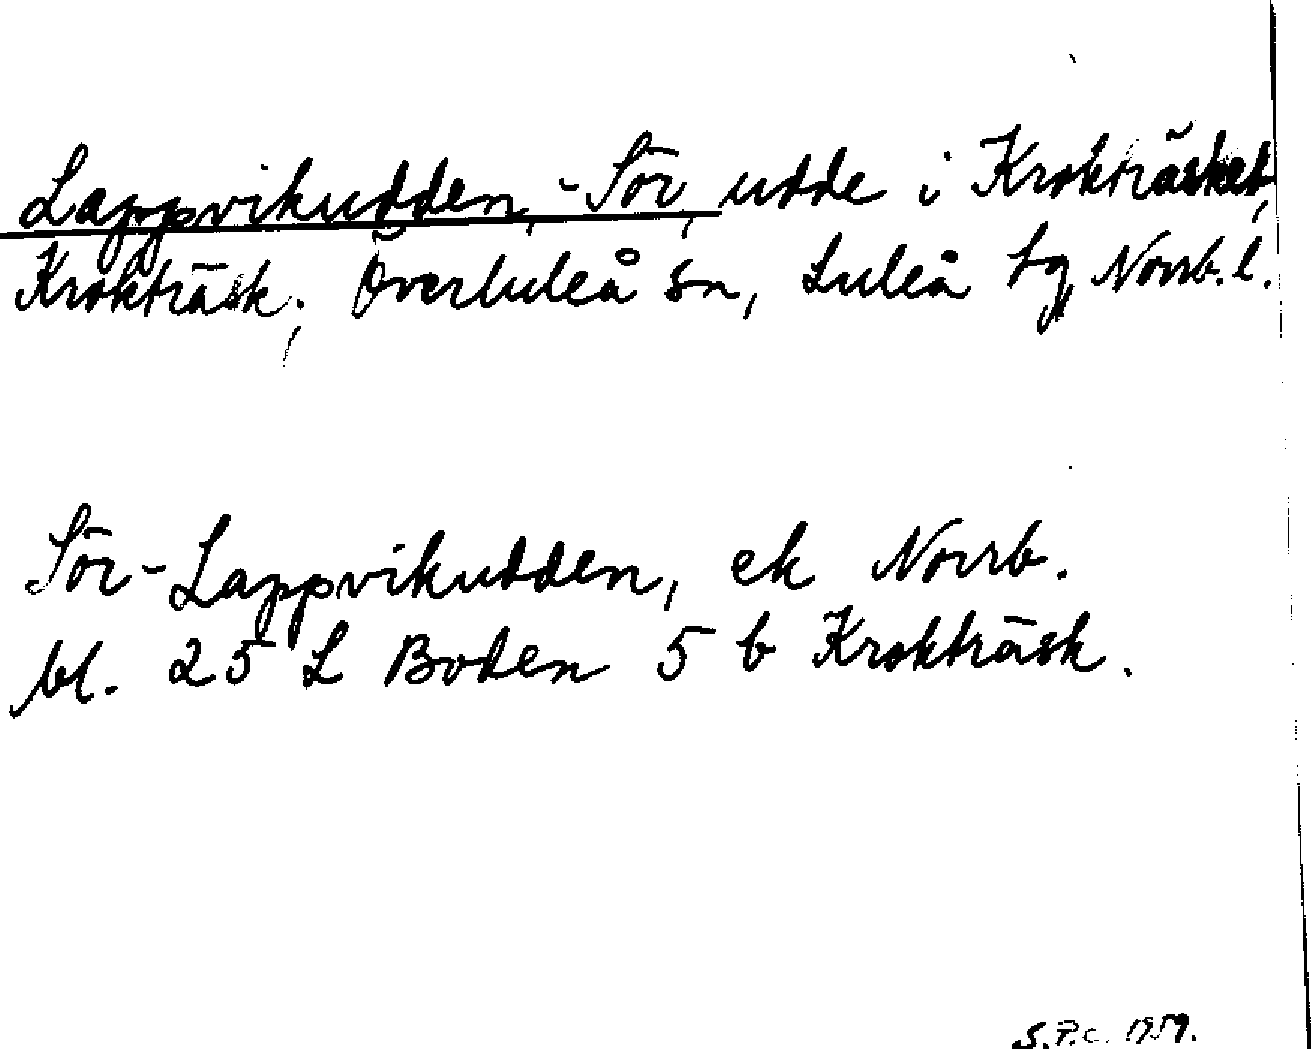 Lappvikudden, -Sör, udde i Krokträsket,
Krokträsk, Överluleå sn, Luleå tg Norrb. l.
Sör-Lappvikudden, ek Norrb.
bl. 25 L Boden 5 b Krokträsk.
S.P.C. 1959.